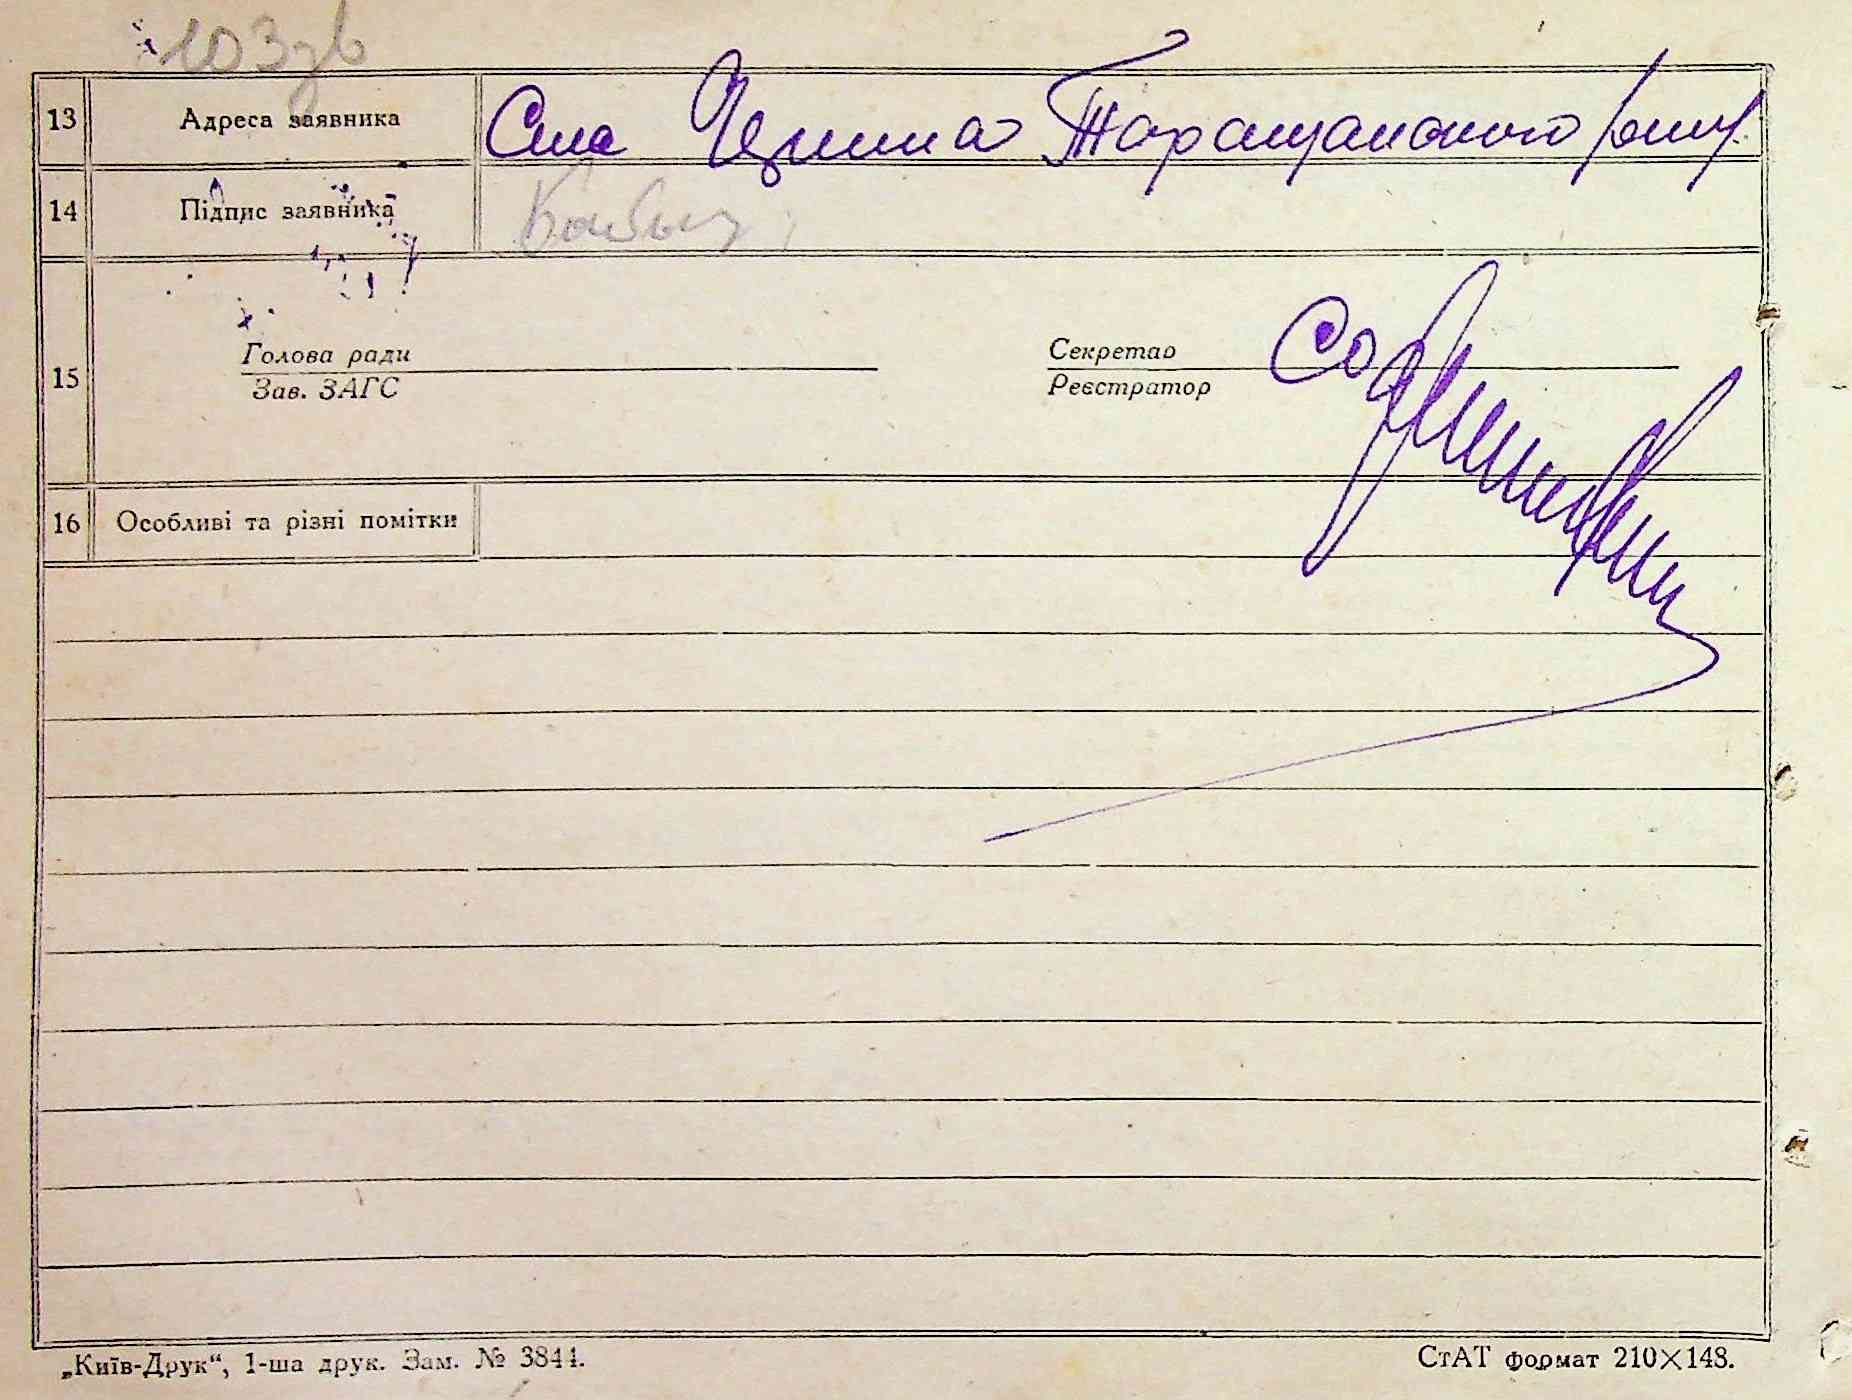 103зв
13 Адреса заявника Села Чернина Таращанского р-ну
14 Підпис заявника
15
Голова ради Секретар
Зав. ЗАГС Реєстратор
16 Особливі та різні помітки
„Київ-Друк“, 1-ша друк. Зам. № 3844. СтАТ формат 210×148.